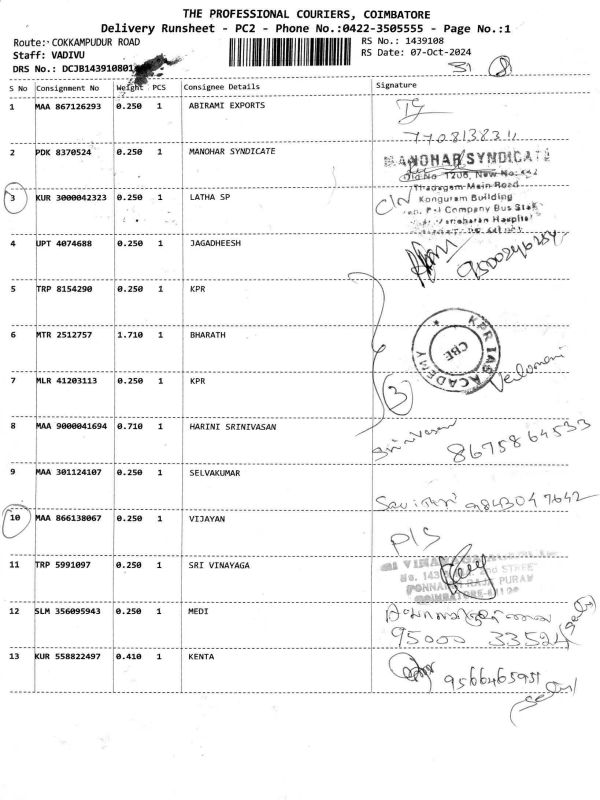 THE PROFESSIONAL COURIERS, COIMBATORE
Delivery Runsheet - PC2 - Phone No.:0422-3505555 - Page No.:1
Route: COKKAMPUDUR ROAD
RS No.: 1439108
Staff: VADIVU
RS Date: 07-Oct-2024
DRS No.: DCJB143910801
31 8
S No Consignment No Weight PCS Consignee Details Signature
1 MAA 867126293 0.250 1 ABIRAMI EXPORTS
2 PDK 8370524 0.250 1 MANOHAR SYNDICATE
MANOHAR SYNDICATE
Old No. 1206, New No:
Thadagam Main Road
3 KUR 3000042323 0.250 1 LATHA SP
Konguram Building
Company Bus
Manoharan Hospital
4 UPT 4074688 0.250 1 JAGADHEESH
5 TRP 8154290 0.250 1 KPR
6 MTR 2512757 1.710 1 BHARATH
KPR IAS ACADEMY
CBE
7 MLR 41203113 0.250 1 KPR
3
8 MAA 9000041694 0.710 1 HARINI SRINIVASAN
Srinivasan
8675864533
9 MAA 301124107 0.250 1 SELVAKUMAR
9843047642
10 MAA 866138067 0.250 1 VIJAYAN
P/S
11 TRP 5991097 0.250 1 SRI VINAYAGA
2nd STREET
PONNAI RAJA PURAM
COIMBATORE
12 SLM 356095943 0.250 1 MEDI
95000 33524
13 KUR 558822497 0.410 1 KENTA
9566465951